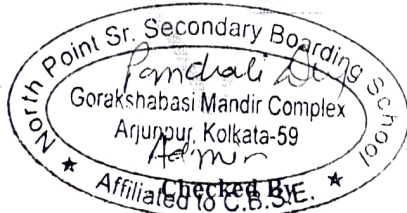 North Point Sr. Secondary Boarding School
Panchali
Gorakshabasi Mandir Complex
Arjunpur, Kolkata-59
★ Affiliated to C.B.S.E. ★
Checked By